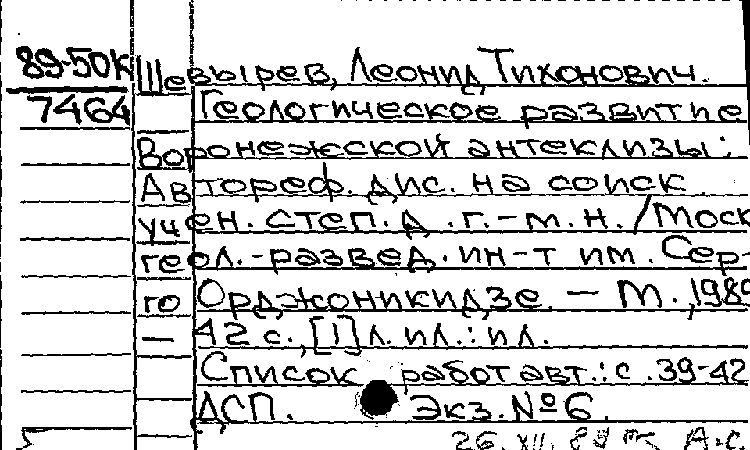 89-50к Шевырев, Леонид Тихонович.
7464 Геологическое развитие
Воронежской антеклизы:
Автореф. дис. на соиск.
учен. степ. д.г.-м.н./Моск
геол.-развед. ин-т им. Сер-
го Орджоникидзе. — М., 1989
— 42 с., [1] л. ил.: ил.
Список работ авт.: с. 39-42
ДСП. Экз. №6.
26. XII.